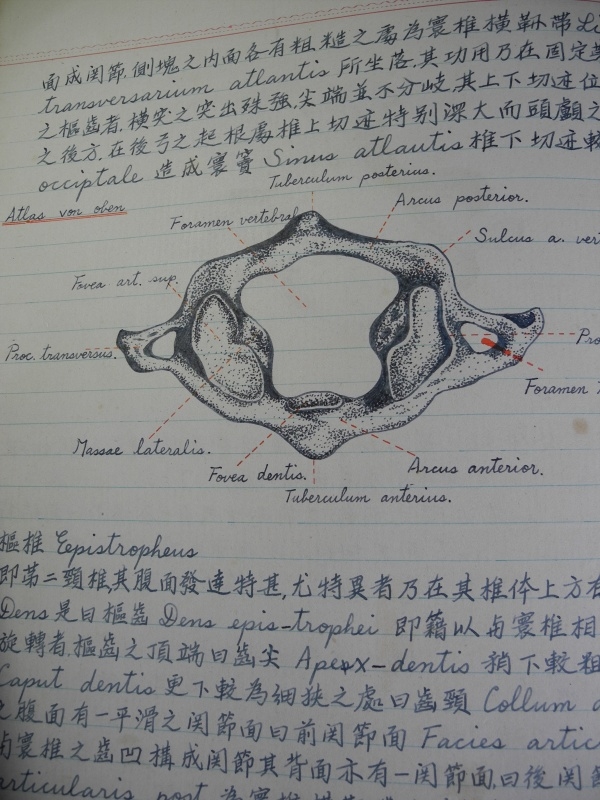 面成関節.側塊之內面各有粗糙之處為寰椎橫靱帶Li
transversarium atlantis 所坐落.其功用乃在固定
之樞齒者.橫突之突出殊強.尖端並不分歧.其上下切迹位
之後方.在後弓之起根處椎上切迹特別深大而頭顱之
occiptale 造成寰竇 Sinus atlautis 椎下切迹較
Tuberculum posterius.
Atlas von oben
Arcus posterior.
Foramen vertebral
Sulcus a. vert
Fovea art. sup
Proc. transversus.
Pro
Foramen
Massae lateralis.
Fovea dentis.
Arcus anterior.
Tuberculum anterius.
樞椎 Eepistropheus
即第二頸椎.其腹面發達特甚,尤特異者乃在其椎体上方
Dens是曰樞齒 Dens epis-trophei 即籍以与寰椎相
旋轉者.樞齒之頂端曰齒尖 Apex-dentis 稍下較粗
Caput dentis 更下較為細狹之處曰齒頸 Collum
之腹面有一平滑之関節面曰前関節面 Facies artic
与寰椎之齒凹構成関節其背面亦有一関節面.曰後関節
articularis post